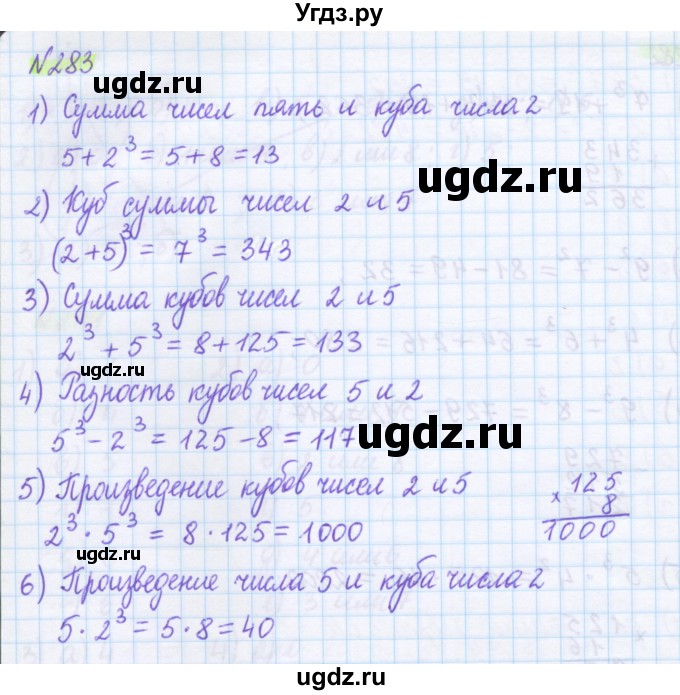 Угдз.ру
№283
ugdz.ru
1) Сумма чисел пять и куба числа 2
5 + 2³ = 5 + 8 = 13
ugdz.ru
2) Куб суммы чисел 2 и 5
(2 + 5)³ = 7³ = 343
ugdz.ru
3) Сумма кубов чисел 2 и 5
2³ + 5³ = 8 + 125 = 133
ugdz.ru
4) Разность кубов чисел 5 и 2
5³ - 2³ = 125 - 8 = 117
ugdz.ru
5) Произведение кубов чисел 2 и 5
2³ · 5³ = 8 · 125 = 1000
× 125
8
1000
ugdz.ru
6) Произведение числа 5 и куба числа 2
5 · 2³ = 5 · 8 = 40
ugdz.ru
ugdz.ru